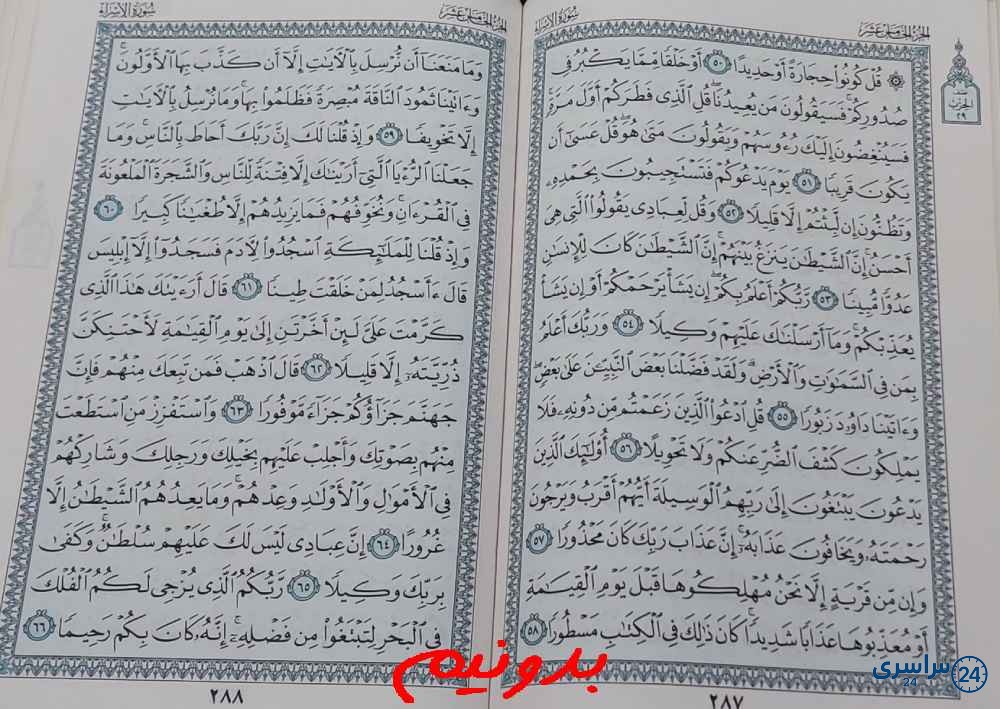 الجزء الخامس عشر
سورة الإسراء
۞ قُلۡ كُونُواْ حِجَارَةً أَوۡ حَدِيدًا ٥٠ أَوۡ خَلۡقٗا مِّمَّا يَكۡبُرُ فِي
صُدُورِكُمۡۚ فَسَيَقُولُونَ مَن يُعِيدُنَاۖ قُلِ ٱلَّذِي فَطَرَكُمۡ أَوَّلَ مَرَّةٖۚ
فَسَيُنۡغِضُونَ إِلَيۡكَ رُءُوسَهُمۡ وَيَقُولُونَ مَتَىٰ هُوَۖ قُلۡ عَسَىٰٓ أَن
يَكُونَ قَرِيبٗا ٥١ يَوۡمَ يَدۡعُوكُمۡ فَتَسۡتَجِيبُونَ بِحَمۡدِهِۦ
وَتَظُنُّونَ إِن لَّبِثۡتُمۡ إِلَّا قَلِيلٗا ٥٢ وَقُل لِّعِبَادِي يَقُولُواْ ٱلَّتِي هِيَ
أَحۡسَنُۚ إِنَّ ٱلشَّيۡطَٰنَ يَنزَغُ بَيۡنَهُمۡۚ إِنَّ ٱلشَّيۡطَٰنَ كَانَ لِلۡإِنسَٰنِ
عَدُوّٗا مُّبِينٗا ٥٣ رَّبُّكُمۡ أَعۡلَمُ بِكُمۡۖ إِن يَشَأۡ يَرۡحَمۡكُمۡ أَوۡ إِن يَشَأۡ
يُعَذِّبۡكُمۡۚ وَمَآ أَرۡسَلۡنَٰكَ عَلَيۡهِمۡ وَكِيلٗا ٥٤ وَرَبُّكَ أَعۡلَمُ
بِمَن فِي ٱلسَّمَٰوَٰتِ وَٱلۡأَرۡضِۗ وَلَقَدۡ فَضَّلۡنَا بَعۡضَ ٱلنَّبِيِّـۧنَ عَلَىٰ بَعۡضٖۖ
وَءَاتَيۡنَا دَاوُۥدَ زَبُورٗا ٥٥ قُلِ ٱدۡعُواْ ٱلَّذِينَ زَعَمۡتُم مِّن دُونِهِۦ فَلَا
يَمۡلِكُونَ كَشۡفَ ٱلضُّرِّ عَنكُمۡ وَلَا تَحۡوِيلًا ٥٦ أُوْلَٰٓئِكَ ٱلَّذِينَ
يَدۡعُونَ يَبۡتَغُونَ إِلَىٰ رَبِّهِمُ ٱلۡوَسِيلَةَ أَيُّهُمۡ أَقۡرَبُ وَيَرۡجُونَ
رَحۡمَتَهُۥ وَيَخَافُونَ عَذَابَهُۥٓۚ إِنَّ عَذَابَ رَبِّكَ كَانَ مَحۡذُورٗا ٥٧
وَإِن مِّن قَرۡيَةٍ إِلَّا نَحۡنُ مُهۡلِكُوهَا قَبۡلَ يَوۡمِ ٱلۡقِيَٰمَةِ
أَوۡ مُعَذِّبُوهَا عَذَابٗا شَدِيدٗاۚ كَانَ ذَٰلِكَ فِي ٱلۡكِتَٰبِ مَسۡطُورٗا ٥٨
٢٨٧
نصف
الحزب
٢٩
الجزء الخامس عشر
سورة الإسراء
وَمَا مَنَعَنَآ أَن نُّرۡسِلَ بِٱلۡأٓيَٰتِ إِلَّآ أَن كَذَّبَ بِهَا ٱلۡأَوَّلُونَۚ
وَءَاتَيۡنَا ثَمُودَ ٱلنَّاقَةَ مُبۡصِرَةٗ فَظَلَمُواْ بِهَاۚ وَمَا نُرۡسِلُ بِٱلۡأٓيَٰتِ
إِلَّا تَخۡوِيفٗا ٥٩ وَإِذۡ قُلۡنَا لَكَ إِنَّ رَبَّكَ أَحَاطَ بِٱلنَّاسِۚ وَمَا
جَعَلۡنَا ٱلرُّءۡيَا ٱلَّتِيٓ أَرَيۡنَٰكَ إِلَّا فِتۡنَةٗ لِّلنَّاسِ وَٱلشَّجَرَةَ ٱلۡمَلۡعُونَةَ
فِي ٱلۡقُرۡءَانِۚ وَنُخَوِّفُهُمۡ فَمَا يَزِيدُهُمۡ إِلَّا طُغۡيَٰنٗا كَبِيرٗا ٦٠
وَإِذۡ قُلۡنَا لِلۡمَلَٰٓئِكَةِ ٱسۡجُدُواْ لِأٓدَمَ فَسَجَدُوٓاْ إِلَّآ إِبۡلِيسَ
قَالَ ءَأَسۡجُدُ لِمَنۡ خَلَقۡتَ طِينٗا ٦١ قَالَ أَرَءَيۡتَكَ هَٰذَا ٱلَّذِي
كَرَّمۡتَ عَلَيَّ لَئِنۡ أَخَّرۡتَنِ إِلَىٰ يَوۡمِ ٱلۡقِيَٰمَةِ لَأَحۡتَنِكَنَّ
ذُرِّيَّتَهُۥٓ إِلَّا قَلِيلٗا ٦٢ قَالَ ٱذۡهَبۡ فَمَن تَبِعَكَ مِنۡهُمۡ فَإِنَّ
جَهَنَّمَ جَزَآؤُكُمۡ جَزَآءٗ مَّوۡفُورٗا ٦٣ وَٱسۡتَفۡزِزۡ مَنِ ٱسۡتَطَعۡتَ
مِنۡهُم بِصَوۡتِكَ وَأَجۡلِبۡ عَلَيۡهِم بِخَيۡلِكَ وَرَجِلِكَ وَشَارِكۡهُمۡ
فِي ٱلۡأَمۡوَٰلِ وَٱلۡأَوۡلَٰدِ وَعِدۡهُمۡۚ وَمَا يَعِدُهُمُ ٱلشَّيۡطَٰنُ إِلَّا
غُرُورًا ٦٤ إِنَّ عِبَادِي لَيۡسَ لَكَ عَلَيۡهِمۡ سُلۡطَٰنٞۚ وَكَفَىٰ
بِرَبِّكَ وَكِيلٗا ٦٥ رَّبُّكُمُ ٱلَّذِي يُزۡجِي لَكُمُ ٱلۡفُلۡكَ
فِي ٱلۡبَحۡرِ لِتَبۡتَغُواْ مِن فَضۡلِهِۦٓۚ إِنَّهُۥ كَانَ بِكُمۡ رَحِيمٗا ٦٦
٢٨٨
بدونیم
سراسری
24
24